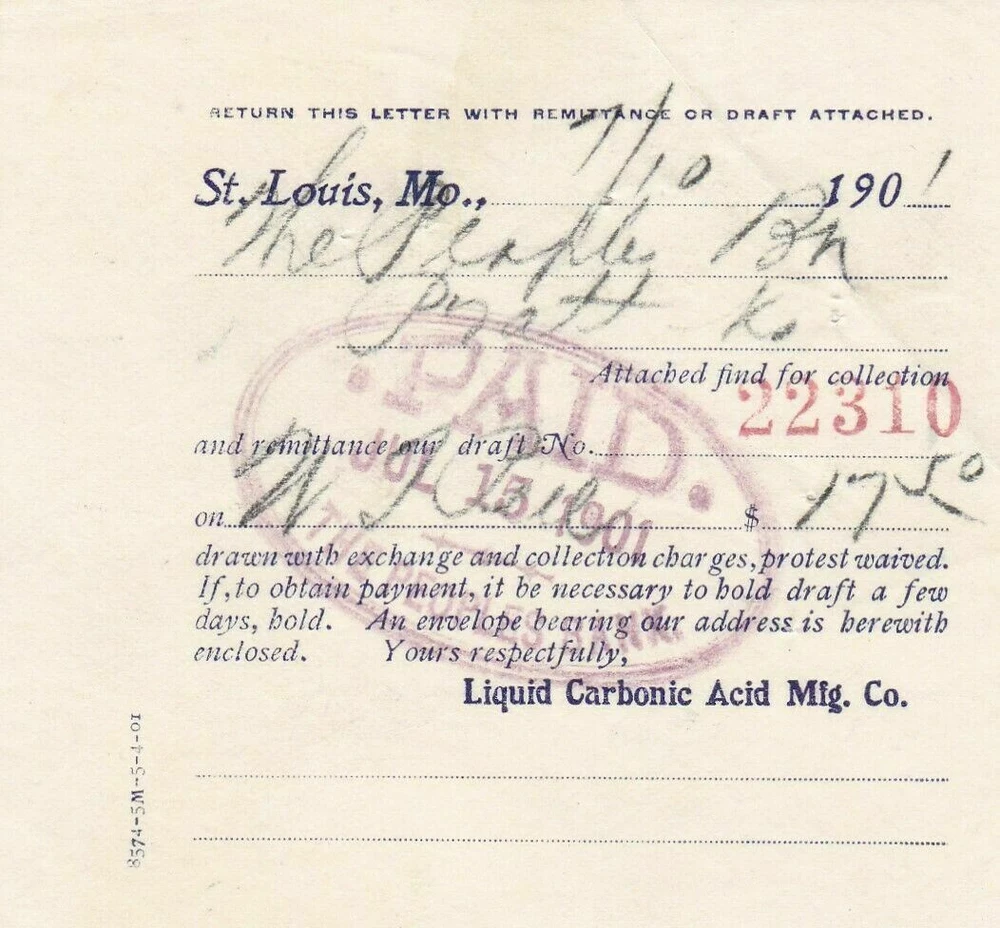 RETURN THIS LETTER WITH REMITTANCE OR DRAFT ATTACHED.
St. Louis, Mo., 7/10 1901
The Peoples Bk
Pratt Ks
Attached find for collection
22310
and remittance our draft No.
on W $ 17 50
drawn with exchange and collection charges, protest waived.
If, to obtain payment, it be necessary to hold draft a few
days, hold. An envelope bearing our address is herewith
enclosed. Yours respectfully,
Liquid Carbonic Acid Mfg. Co.
PAID.
JUL 15 1901
THE PEOPLES BANK.
8574-5M-5-4-01